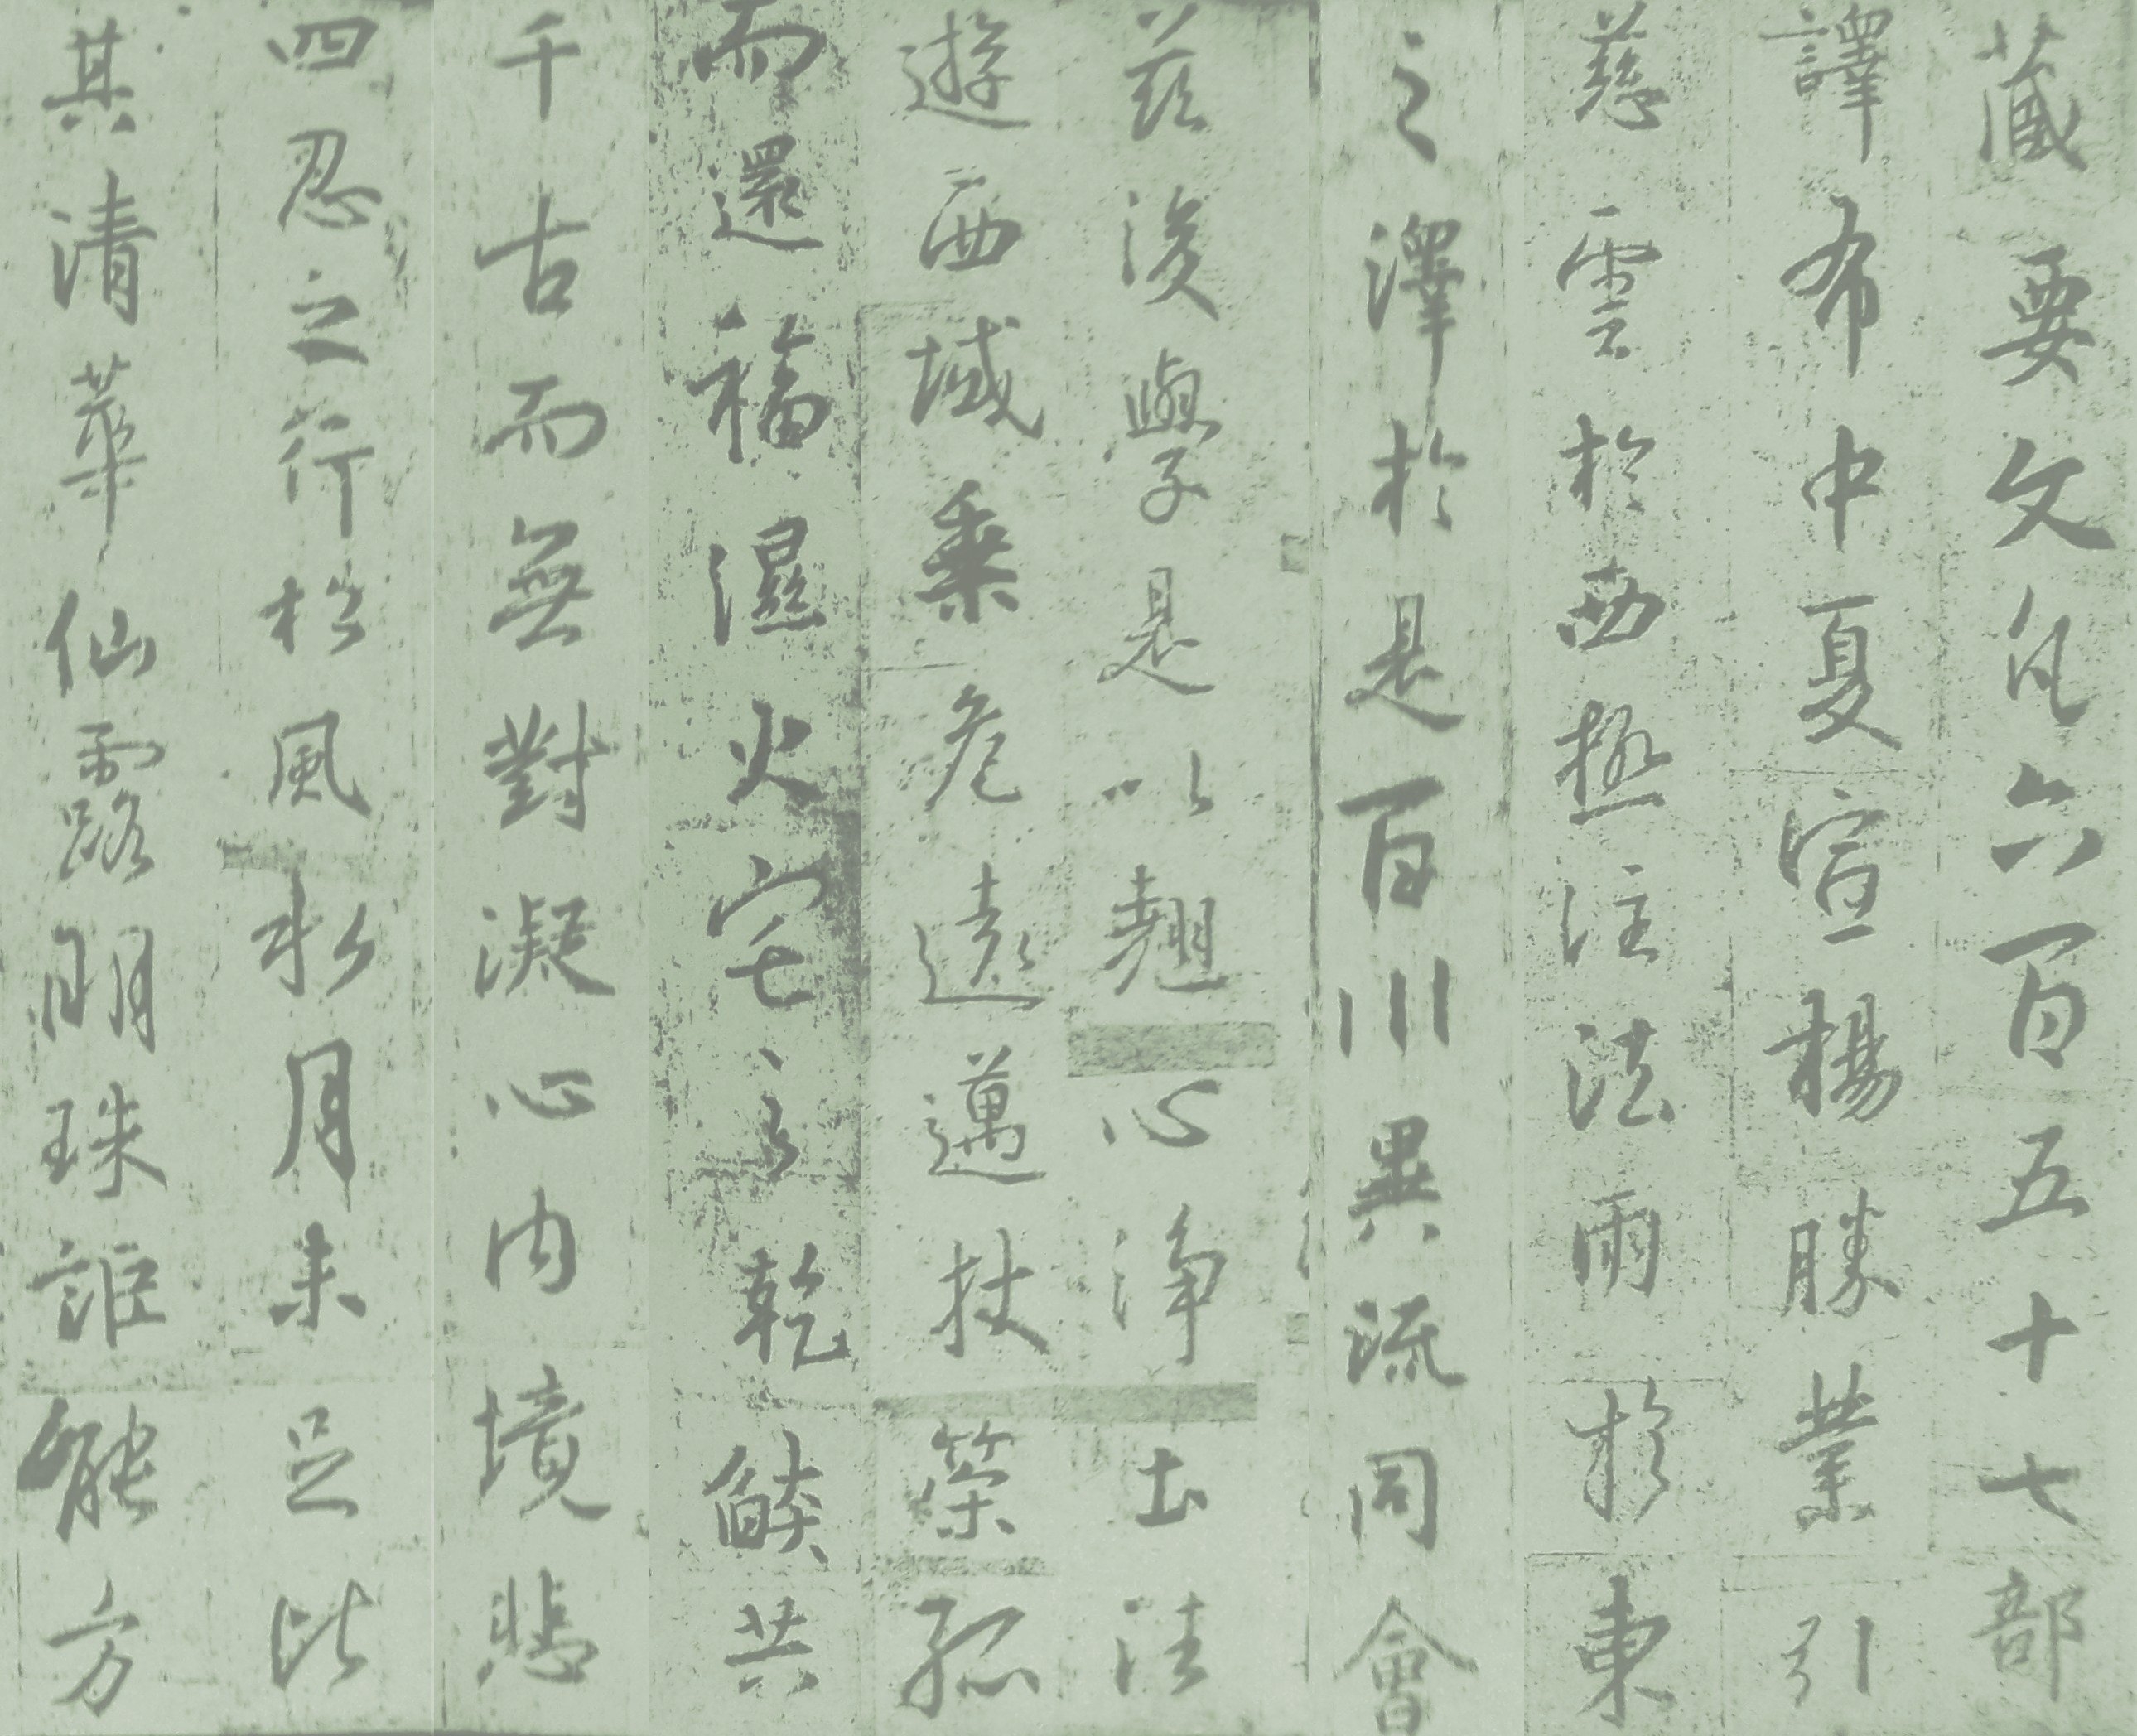 藏要文凡六百五十七部
譯布中夏宣揚勝業引
慈雲於西極注法雨於東
之澤於是百川異流同會
茲後學是以翹心淨土法
遊西域乘危遠邁杖策孤
而還福濕火宅之乾燄共
千古而無對凝心內境悲
四忍之行松風水月未足比
其清華仙露明珠詎能方